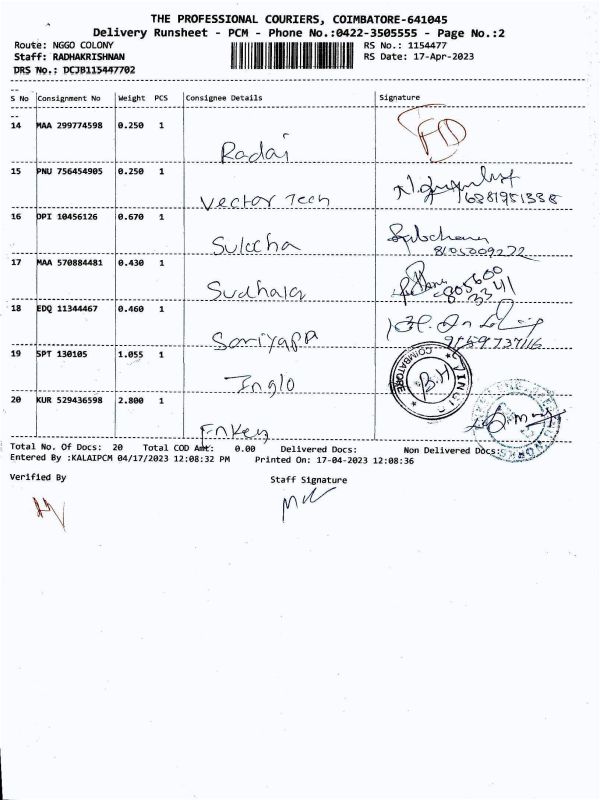 THE PROFESSIONAL COURIERS, COIMBATORE-641045
Delivery Runsheet - PCM - Phone No.:0422-3505555 - Page No.:2
Route: NGGO COLONY RS No.: 1154477
Staff: RADHAKRISHNAN RS Date: 17-Apr-2023
DRS No.: DCJB115447702
S No Consignment No Weight PCS Consignee Details Signature
14 MAA 299774598 0.250 1
Radai
15 PNU 756454905 0.250 1
Vector Tech
16 OPI 10456126 0.670 1
Sulecha
8105009272
17 MAA 570884481 0.430 1
Sudhala
18 EDQ 11344467 0.460 1
Soniyapa
19 SPT 130105 1.055 1
Inglo
COIMBATORE
B.H
20 KUR 529436598 2.800 1
Enkey
Total No. Of Docs: 20 Total COD Amt: 0.00 Delivered Docs: Non Delivered Docs:
Entered By :KALAIPCM 04/17/2023 12:08:32 PM Printed On: 17-04-2023 12:08:36
Verified By Staff Signature